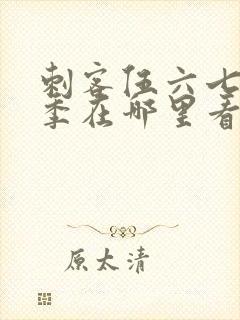 刺客伍六七
季在哪里看
原太清